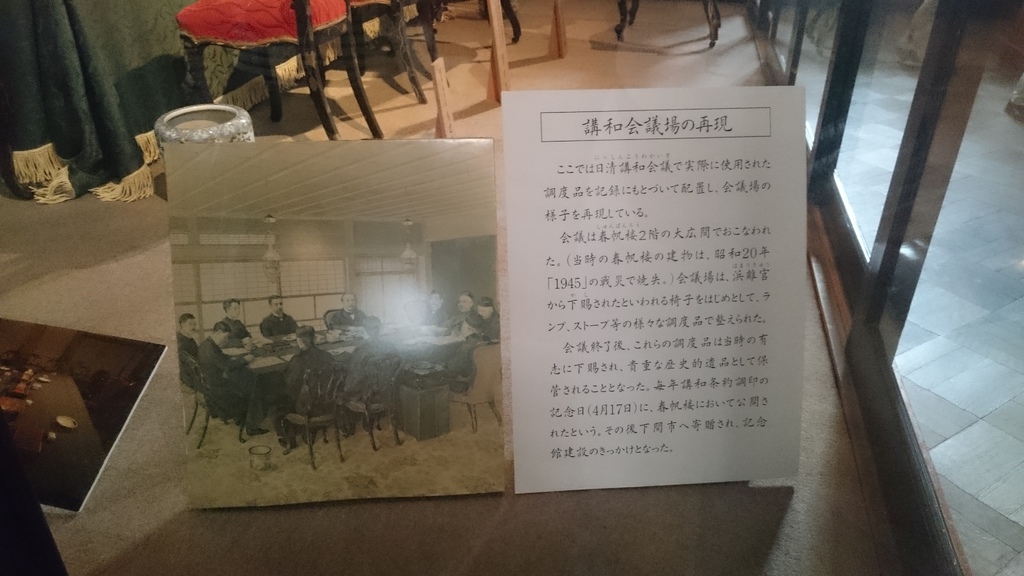 講和会議場の再現
にっしんこうわかいぎ
ここでは日清講和会議で実際に使用された
調度品を記録にもとづいて配置し、会議場の
様子を再現している。
しゅんぱんろう
会議は春帆楼2階の大広間でおこなわれ
た。(当時の春帆楼の建物は、昭和20年
「1945」の戦災で焼失。)会議場は、浜離宮
から下賜されたといわれる椅子をはじめとして、ラ
ンプ、ストーブ等の様々な調度品で整えられた。
会議終了後、これらの調度品は当時の有
志に下賜され、貴重な歴史的遺品として保
管されることとなった。毎年講和条約調印の
記念日(4月17日)に、春帆楼において公開さ
れたという。その後下関市へ寄贈され、記念
館建設のきっかけとなった。